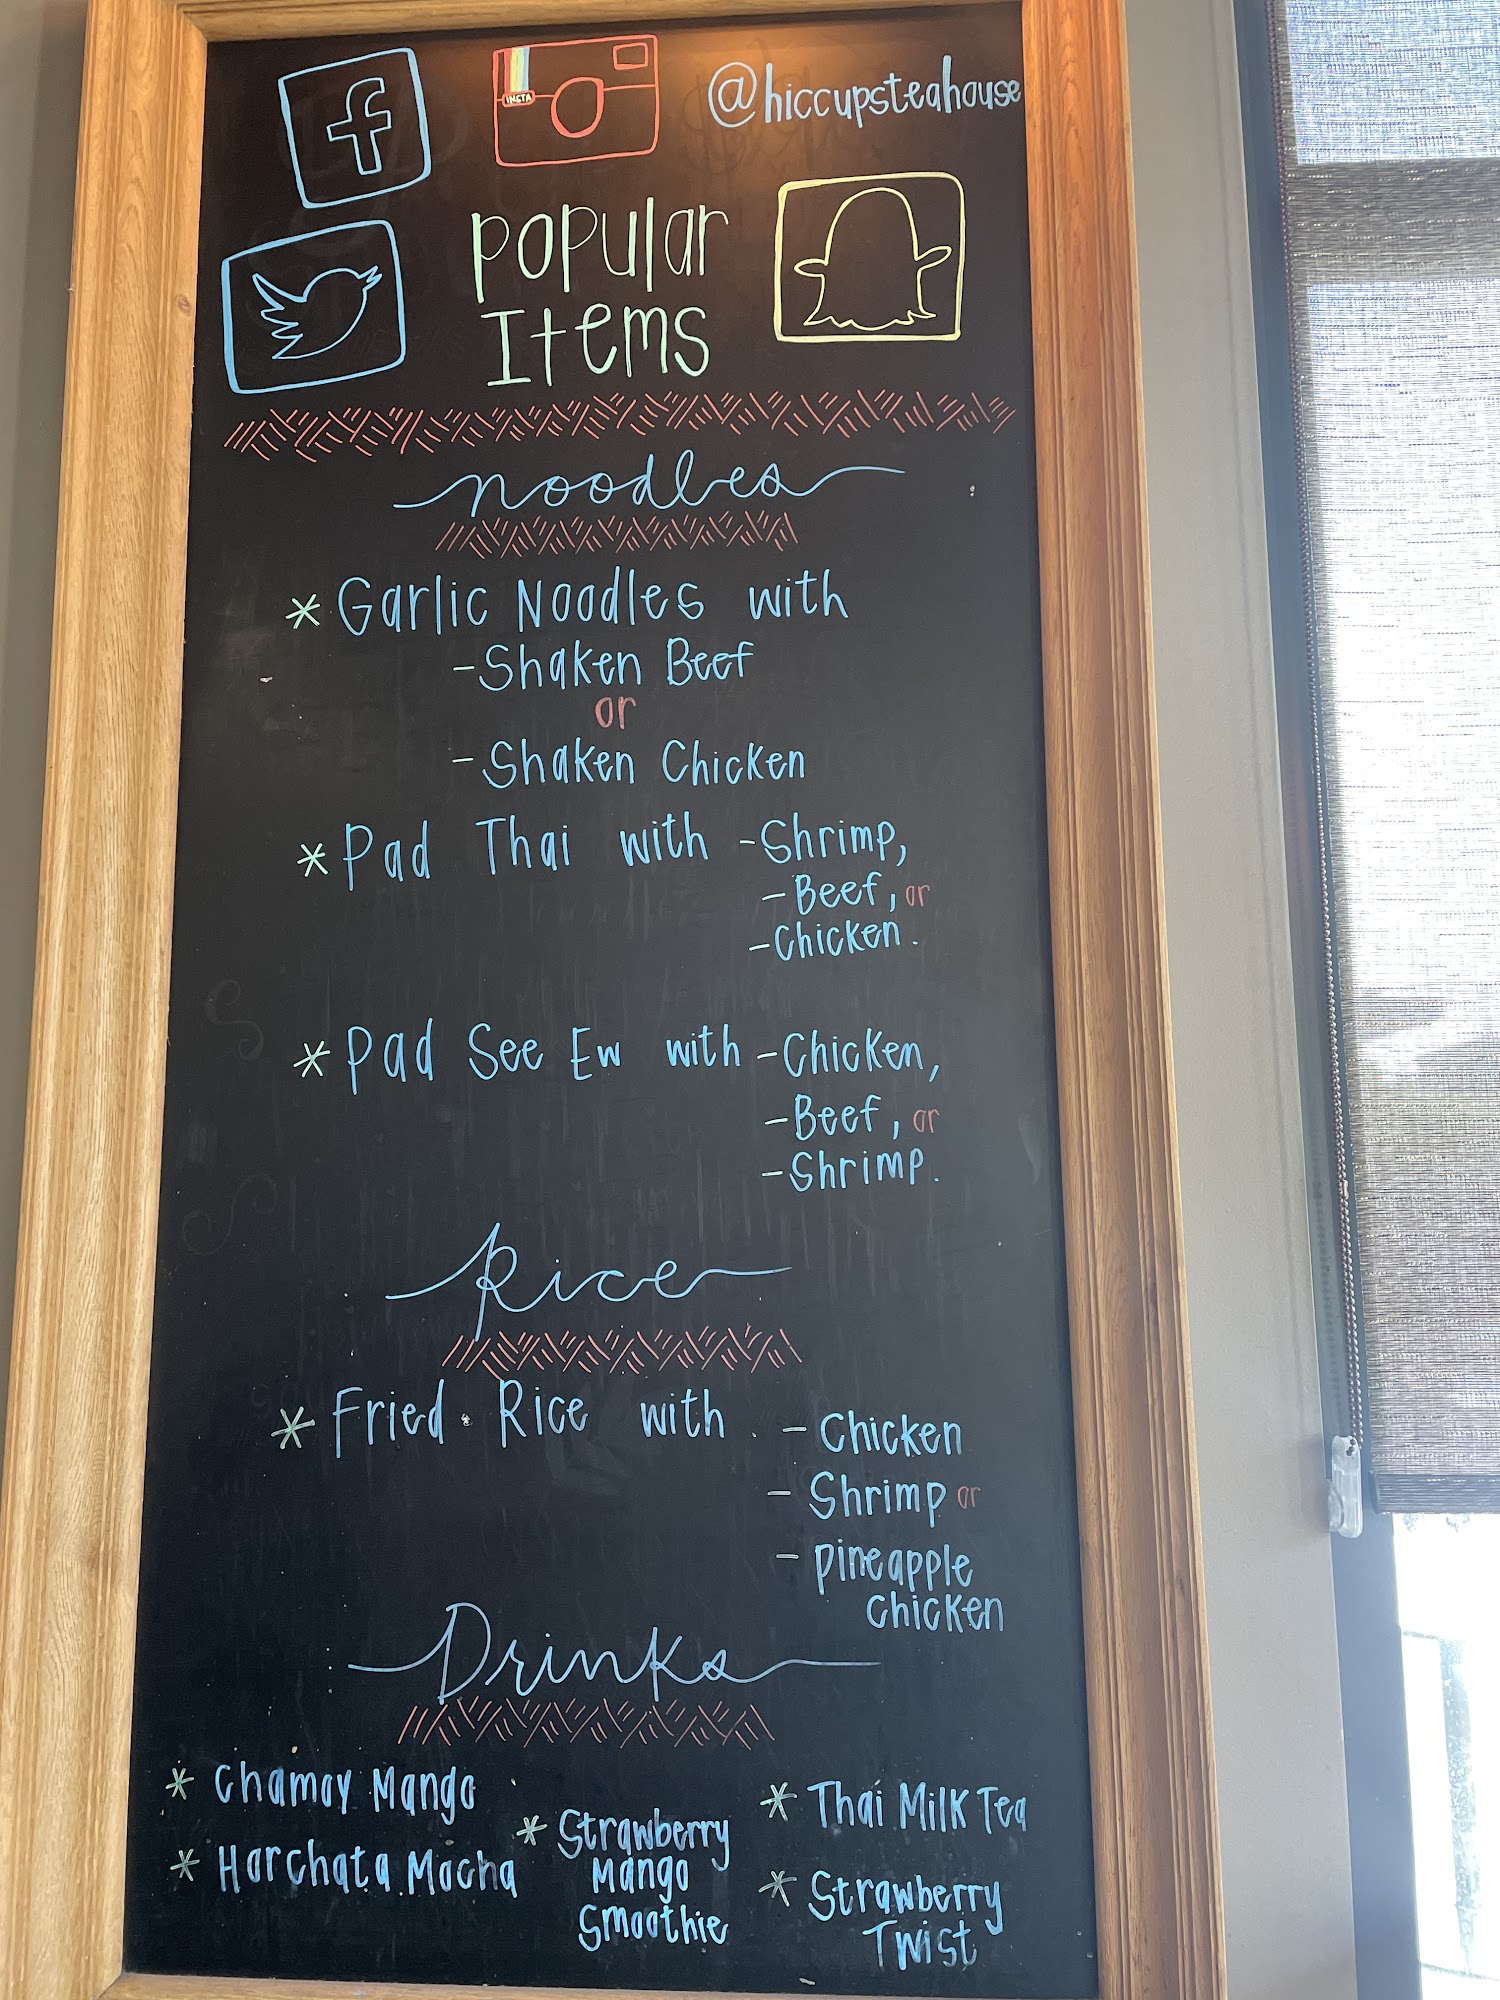 f
INSTA
@hiccupsteahouse
Popular
Items
noodles
* Garlic Noodles with
- Shaken Beef
or
- Shaken Chicken
* Pad Thai with - Shrimp,
- Beef, or
- Chicken.
* Pad See Ew with - Chicken,
- Beef, or
- Shrimp.
Rice
* Fried Rice with - Chicken
- Shrimp or
- pineapple
chicken
Drinks
* Chamoy Mango
* Horchata Mocha
* Strawberry
Mango
Smoothie
* Thai Milk Tea
* Strawberry
Twist